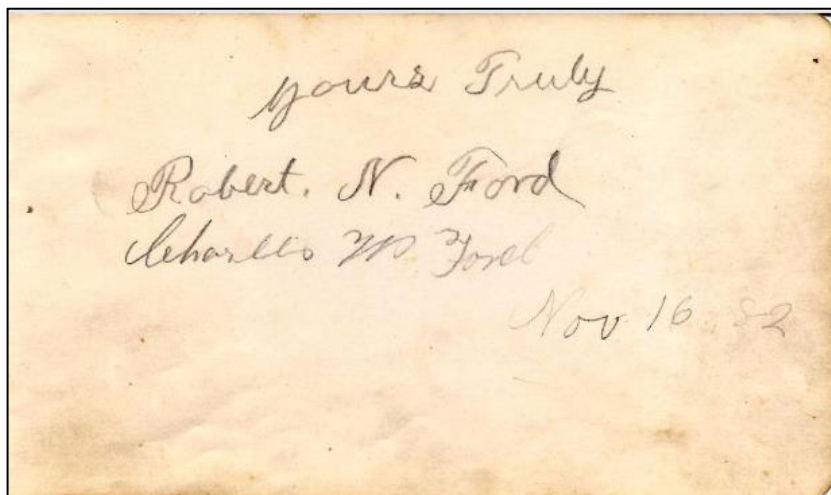 Yours Truly
Robert. N. Ford
Charles Ford
Nov 16 82